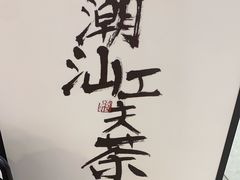 潮汕工夫茶